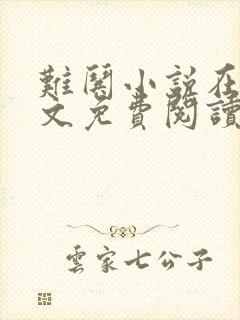 難闋小説在
文免費閱讀
雲家七公子